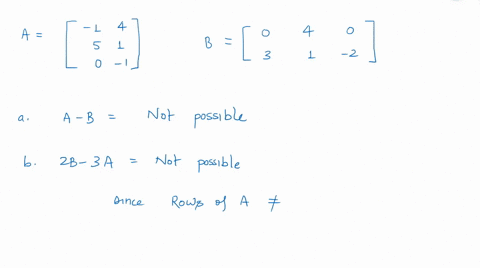 A = [ -1 4 B = [ 0 4 0
5 1 3 1 -2 ]
0 -1 ]
a. A-B = Not possible
b. 2B-3A = Not possible
since Rows of A ≠